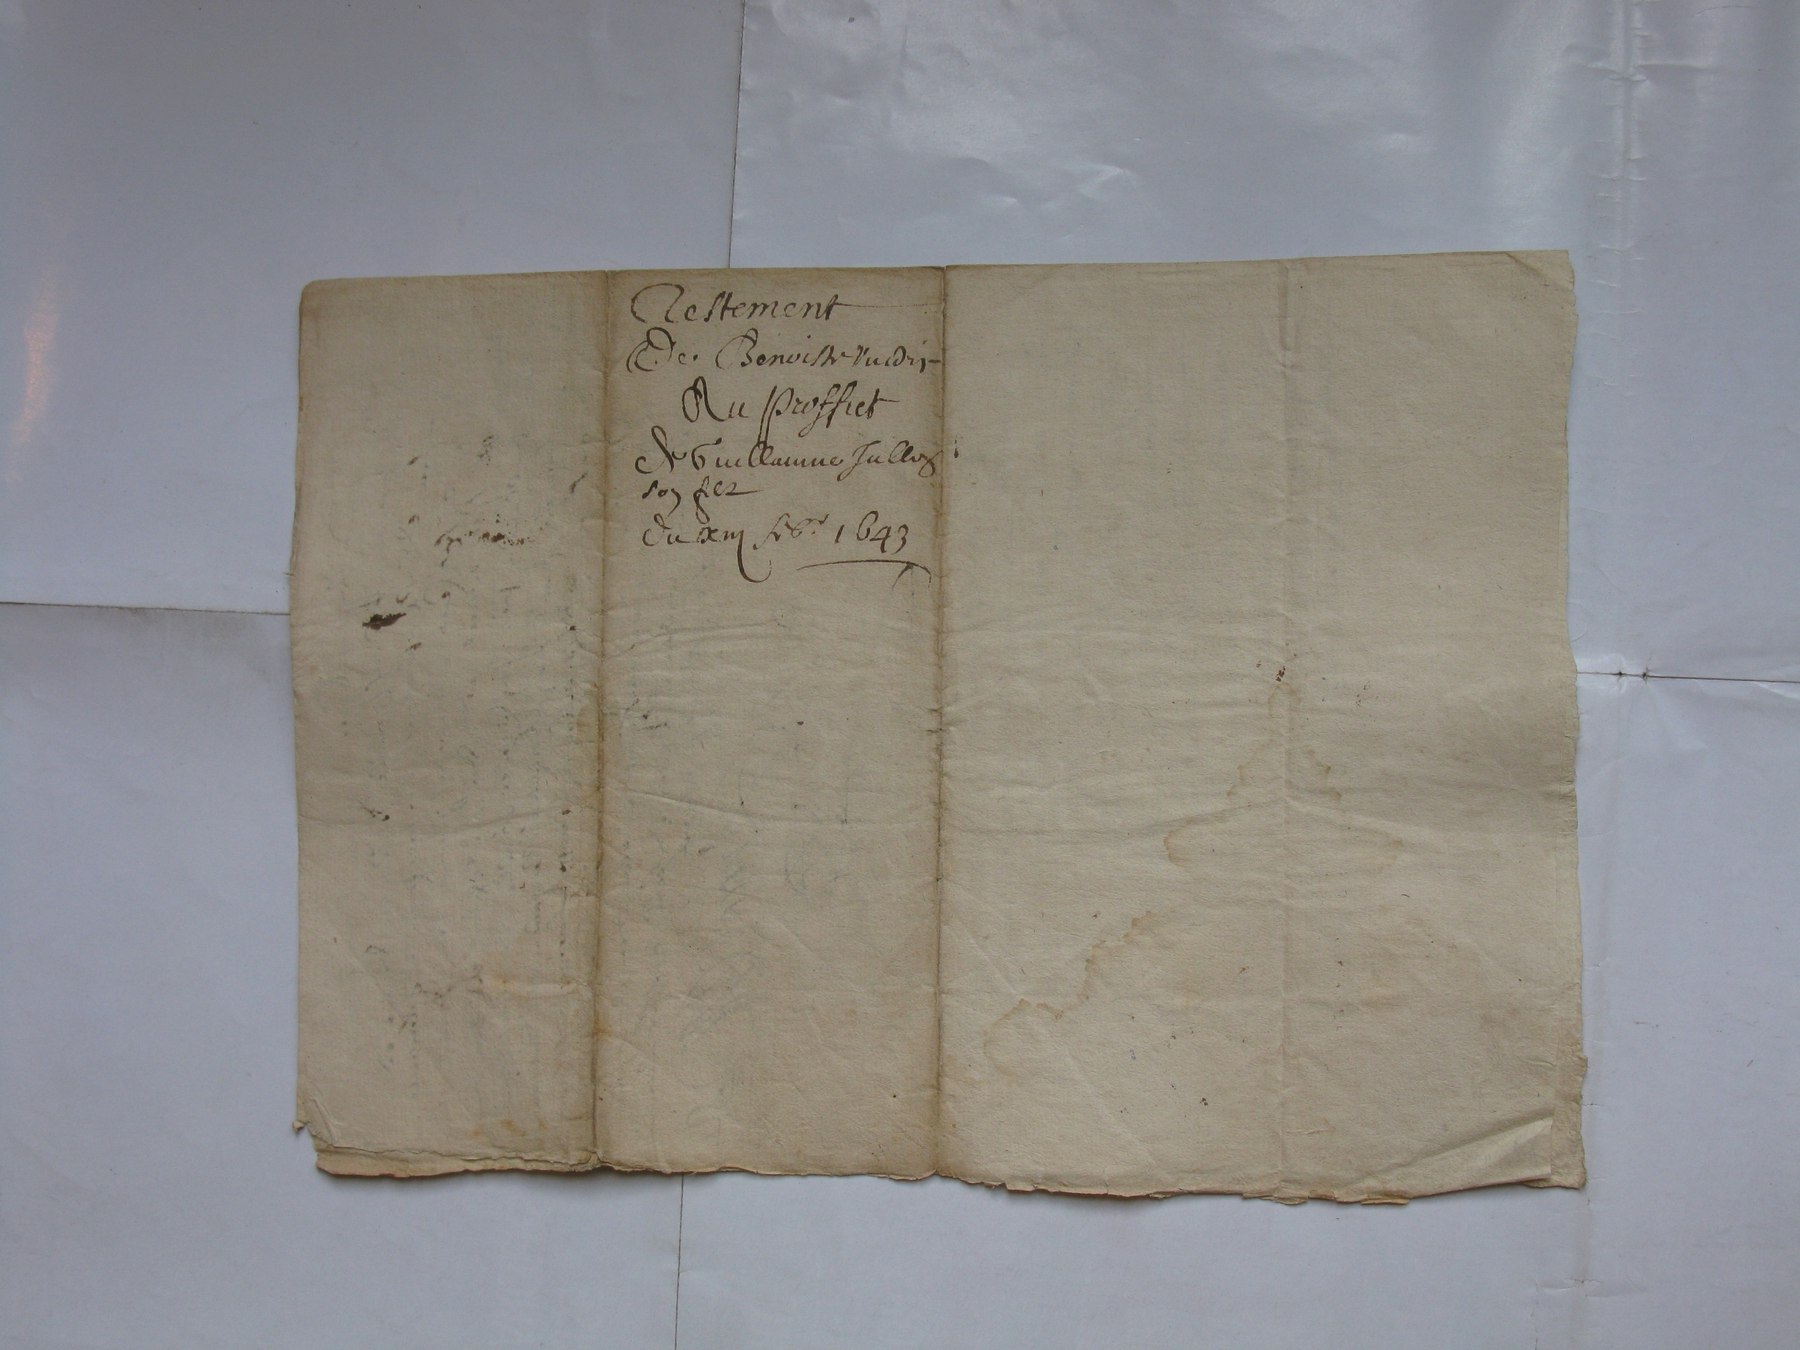 Testement
De Benoiste
Au proffict
de Guillaume Jullos
son filz
du xiii feb.r 1643